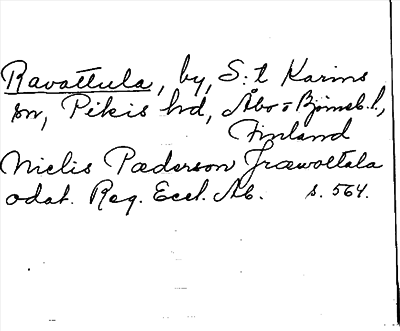 Ravattula, by, S:t Karins
sn, Pikis hd, Åbo o Björneb. l.,
Finland
Nielis Pæderson Frawottala
odat. Reg. Eccl. Ab. s. 564.